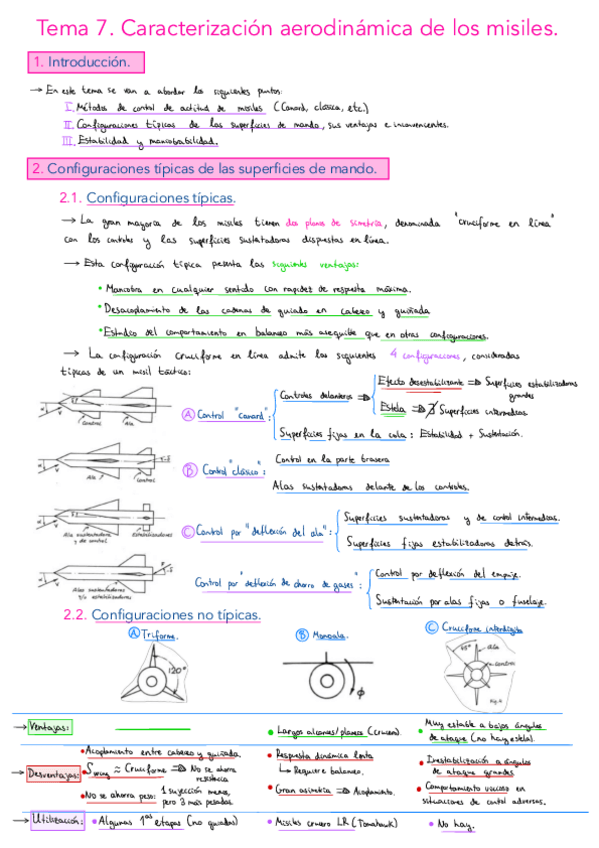 Tema 7. Caracterización aerodinámica de los misiles.
1. Introducción.
→ En este tema se van a abordar los siguientes puntos:
I. Métodos de control de actitud de misiles (Canard, clásica, etc.)
II. Configuraciones típicas de las superficies de mando, sus ventajas e inconvenientes.
III. Estabilidad y maniobrabilidad.
2. Configuraciones típicas de las superficies de mando.
2.1. Configuraciones típicas.
→ La gran mayoría de los misiles tienen dos planos de simetría, denominada "cruciforme en línea"
con los controles y las superficies sustentadoras dispuestas en línea.
→ Esta configuración típica presenta las siguientes ventajas:
• Maniobra en cualquier sentido con rapidez de respuesta máxima.
• Desacoplamiento de las cadenas de guiado en cabeceo y guiñada
• Estudio del comportamiento en balanceo más asequible que en otras configuraciones.
→ La configuración cruciforme en línea admite las siguientes 4 configuraciones, consideradas
típicas de un misil táctico:
Control Ala
Ⓐ Control "canard":
Controles delanteros ⇒
Efecto desestabilizante ⇒ Superficies estabilizadoras
grandes
Estela ⇒ ∄ Superficies intermedias.
Superficies fijas en la cola: Estabilidad + Sustentación.
Ala Control
Ⓑ Control "clásico":
Control en la parte trasera
Alas sustentadoras delante de los controles.
Ala sustentadora
y de control
Estabilizadores
Ⓒ Control por "deflexión del ala":
Superficies sustentadoras y de control intermedias.
Superficies fijas estabilizadoras detrás.
Alas sustentadoras
y/o estabilizadoras
Control por "deflexión de chorro de gases":
Control por deflexión del empuje.
Sustentación por alas fijas o fuselaje.
2.2. Configuraciones no típicas.
Ⓐ Triforme.
Ⓑ Monoala.
Ⓒ Cruciforme interdigita
120°
ϕ
45°
ala
control
→ Ventajas:
• Largos alcances/planeos (crucero).
• Muy estable a bajos ángulos
de ataque (no hay estela).
→ Desventajas:
• Acoplamiento entre cabeceo y guiñada.
≈ Cruciforme ⇒ No se ahorra
resistencia
• No se ahorra peso: 1 sujección menos,
pero 3 más pesadas.
• Respuesta dinámica lenta
↳ Requiere balanceo.
• Gran asimetría ⇒ Acoplamiento.
• Inestabilización a ángulos
de ataque grandes.
• Comportamiento viscoso en
situaciones de control adversas.
→ Utilización:
• Algunas 1as etapas (no guiadas)
• Misiles crucero LR (Tomahawk)
• No hay.